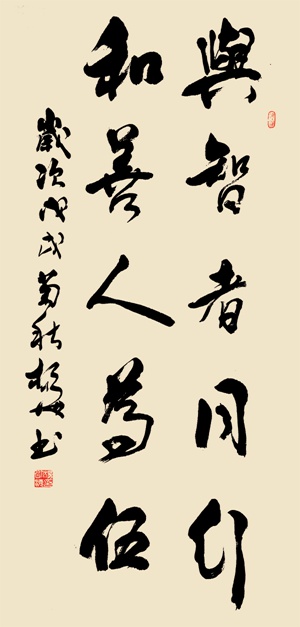 與智者同行
和善人為伍
歲次戊戌菊秋
書